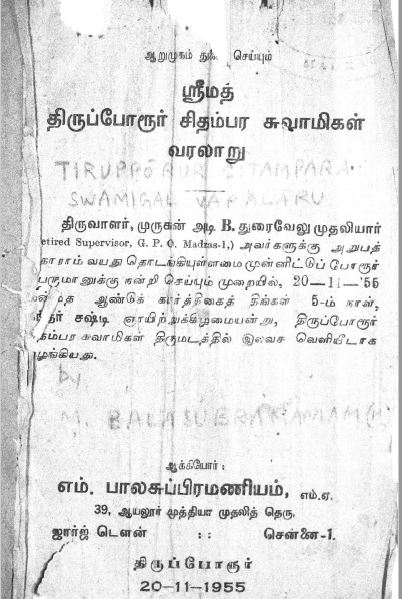 ஆறுமுகம் துணை செய்யும்
ஸ்ரீமத்
திருப்போரூர் சிதம்பர சுவாமிகள்
வரலாறு
TIRUPPŌRUR SITAMPARA
SWAMIGAL VARALARU
திருவாளர், முருகன் அடி B. துரைவேலு முதலியார்
etired Supervisor, G. P. O. Madras-1,) அவர்களுக்கு அறுபத்
தாராம் வயது தொடங்கியுள்ளமை முன்னிட்டுப் போரூர்
பருமானுக்கு நன்றி செய்யும் முறையில், 20—11—'55
ஆண்டுக் கார்த்திகைத் திங்கள் 5-ம் நாள்,
சஷ்டி ஞாயிற்றுக்கிழமையன்று, திருப்போரூர்
தம்பர சுவாமிகள் திருமடத்தில் இலவச வெளியீடாக
ழங்கியது.
by
M. BALASUBRAMANIAM
ஆக்கியோர் :
எம். பாலசுப்பிரமணியம், எம்.ஏ.
39, ஆயலூர் முத்தியா முதலித் தெரு,
ஜார்ஜ் டௌன் : : சென்னை-1.
திருப்போரூர்
20-11-1955